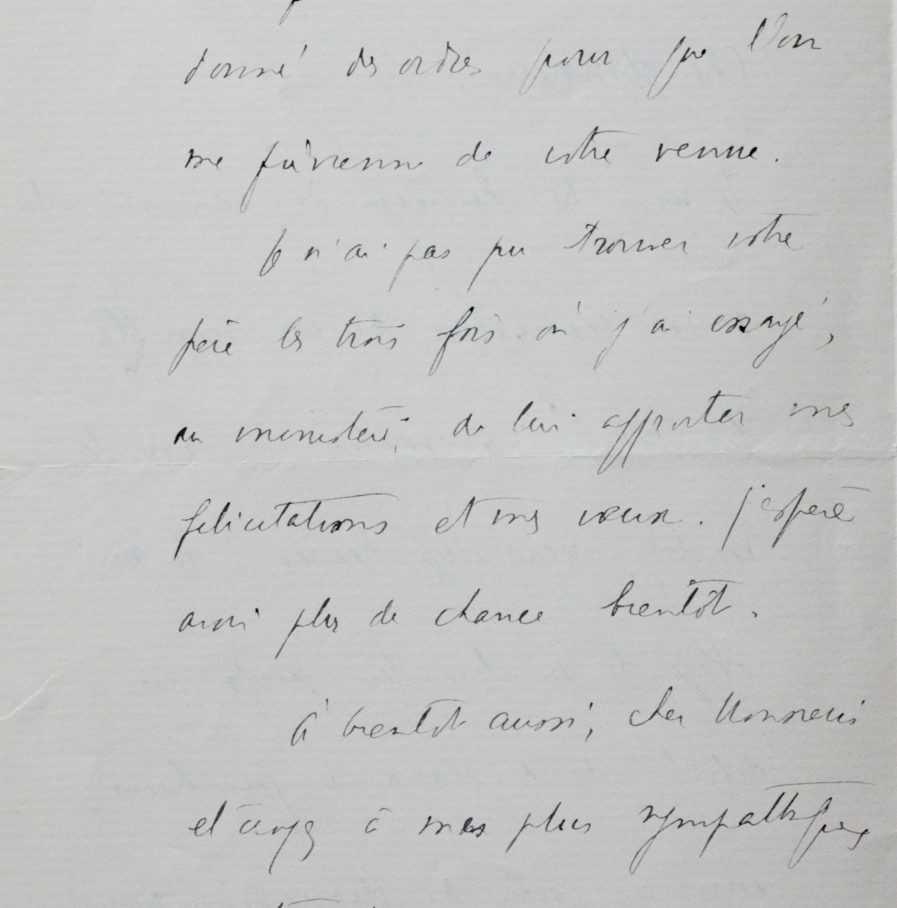 donné des ordres pour que l'on
me prévienne de votre venue.
Je n'ai pas pu trouver votre
père les trois fois où j'ai essayé,
au ministère, de lui apporter mes
félicitations et mes vœux. J'espère
avoir plus de chance bientôt.
À bientôt aussi, cher Monsieur
et croyez à mes plus sympathiques